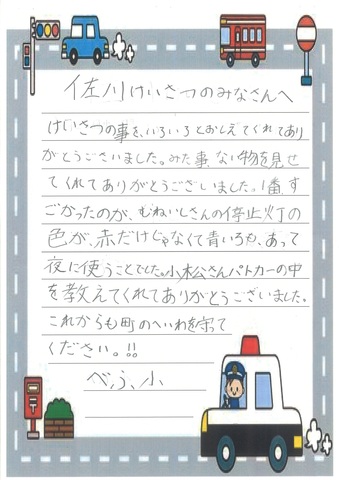 佐川けいさつのみなさんへ
けいさつの事を、いろいろとおしえてくれてあり
がとうございました。みた事、ない物を見せ
てくれてありがとうございました。1番、す
ごかったのが、むねいしさんの停止灯の
色が、赤だけじゃなくて青いろや、あって
夜に使うことでした。小松さんパトカーの中
を教えてくれてありがとうございました。
これからも町のへいわを守って
ください。!!
べふ、小